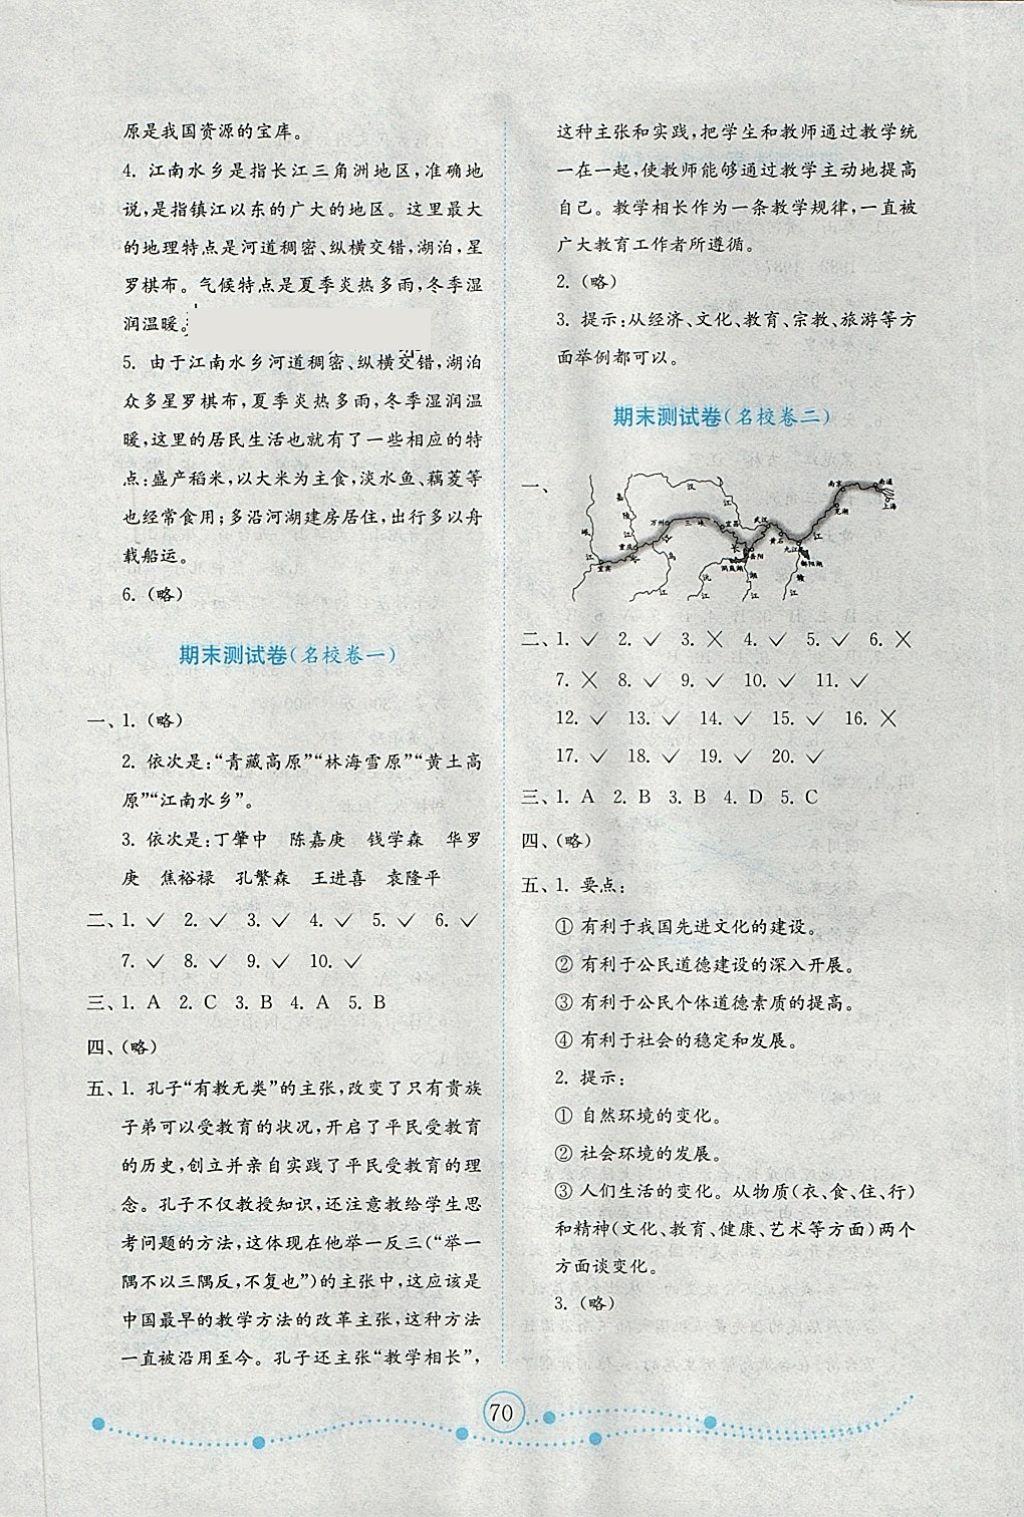 原是我国资源的宝库。
4. 江南水乡是指长江三角洲地区,准确地
说,是指镇江以东的广大的地区。这里最大
的地理特点是河道稠密、纵横交错,湖泊,星
罗棋布。气候特点是夏季炎热多雨,冬季湿
润温暖。
5. 由于江南水乡河道稠密、纵横交错,湖泊
众多星罗棋布,夏季炎热多雨,冬季湿润温
暖,这里的居民生活也就有了一些相应的特
点:盛产稻米,以大米为主食,淡水鱼、藕菱等
也经常食用;多沿河湖建房居住,出行多以舟
载船运。
6.(略)
期末测试卷(名校卷一)
一、1.(略)
2. 依次是:“青藏高原”“林海雪原”“黄土高
原”“江南水乡”。
3. 依次是:丁肇中 陈嘉庚 钱学森 华罗
庚 焦裕禄 孔繁森 王进喜 袁隆平
二、1. ✓ 2. ✓ 3. ✓ 4. ✓ 5. ✓ 6. ✓
7. ✓ 8. ✓ 9. ✓ 10. ✓
三、1. A 2. C 3. B 4. A 5. B
四、(略)
五、1. 孔子“有教无类”的主张,改变了只有贵族
子弟可以受教育的状况,开启了平民受教育
的历史,创立并亲自实践了平民受教育的理
念。孔子不仅教授知识,还注意教给学生思
考问题的方法,这体现在他举一反三(“举一
隅不以三隅反,不复也”)的主张中,这应该是
中国最早的教学方法的改革主张,这种方法
一直被沿用至今。孔子还主张“教学相长”,
这种主张和实践,把学生和教师通过教学统
一在一起,使教师能够通过教学主动地提高
自己。教学相长作为一条教学规律,一直被
广大教育工作者所遵循。
2.(略)
3. 提示:从经济、文化、教育、宗教、旅游等方
面举例都可以。
期末测试卷(名校卷二)
一、
岷
江
宜宾
嘉
陵
江
重庆
万州
长
乌
江
三峡
宜昌
汉
江
武汉
长
岳阳
洞庭湖
沅
江
湘
江
黄石
九江
鄱阳湖
赣
江
江
芜湖
南京
南通
上海
二、1. ✓ 2. ✓ 3. ✗ 4. ✓ 5. ✓ 6. ✗
7. ✗ 8. ✓ 9. ✓ 10. ✓ 11. ✓
12. ✓ 13. ✓ 14. ✓ 15. ✓ 16. ✗
17. ✓ 18. ✓ 19. ✓ 20. ✓
三、1. A 2. B 3. B 4. D 5. C
四、(略)
五、1. 要点:
① 有利于我国先进文化的建设。
② 有利于公民道德建设的深入开展。
③ 有利于公民个体道德素质的提高。
④ 有利于社会的稳定和发展。
2. 提示:
① 自然环境的变化。
② 社会环境的发展。
③ 人们生活的变化。从物质(衣、食、住、行)
和精神(文化、教育、健康、艺术等方面)两个
方面谈变化。
3.(略)
70